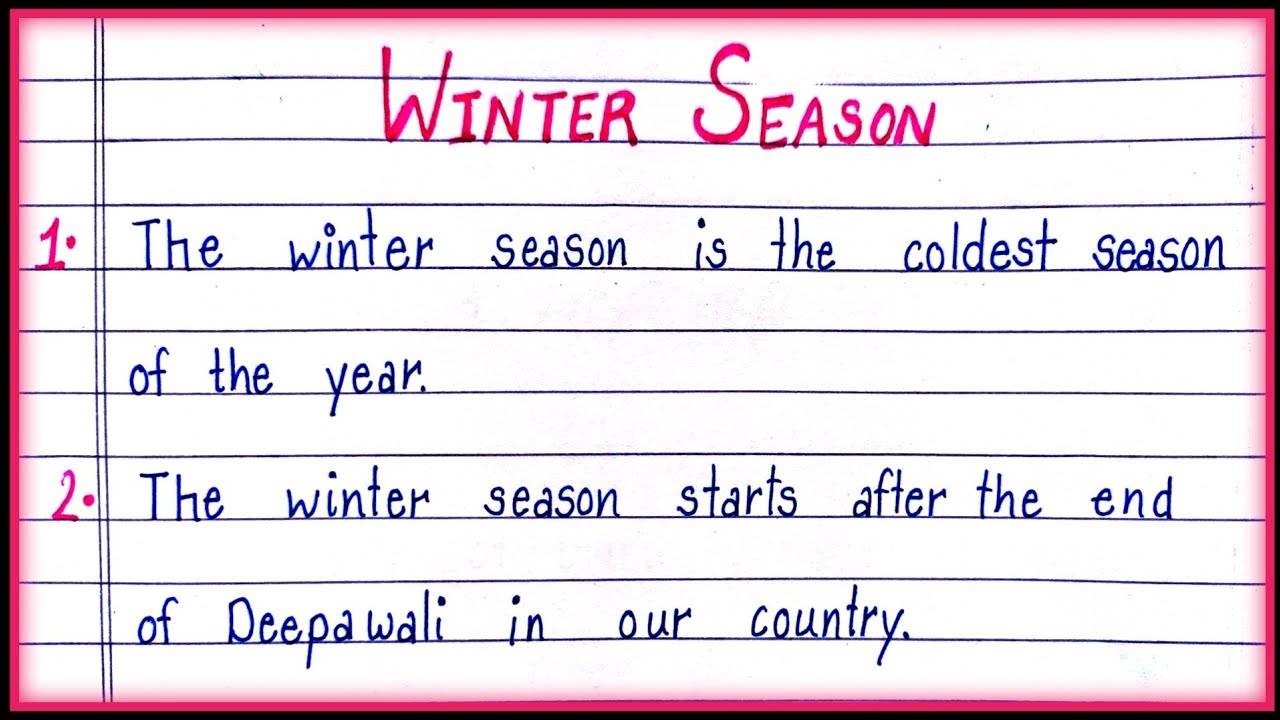 WINTER SEASON
1. The winter season is the coldest season
of the year.
2. The winter season starts after the end
of Deepawali in our country.